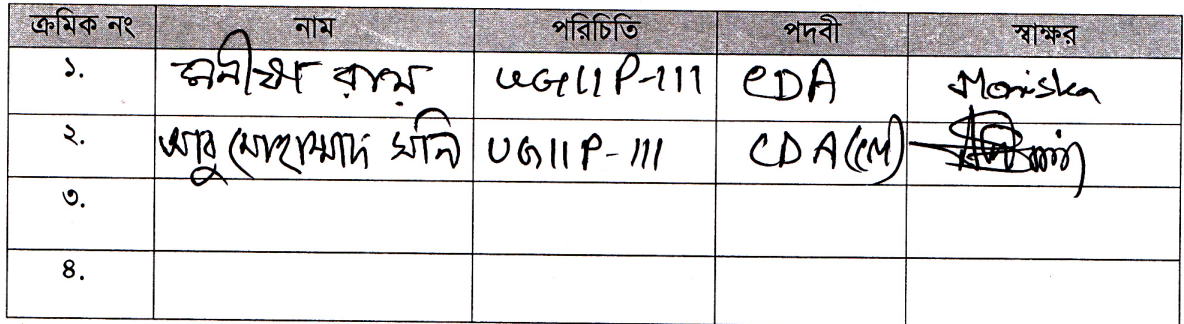 ক্রমিক নং নাম পরিচিতি পদবী স্বাক্ষর
১. মনীষা রায় UGIIP-III CDA Moniska
২. আবু মোহাম্মাদ UGIIP-III CDA
৩.
৪.